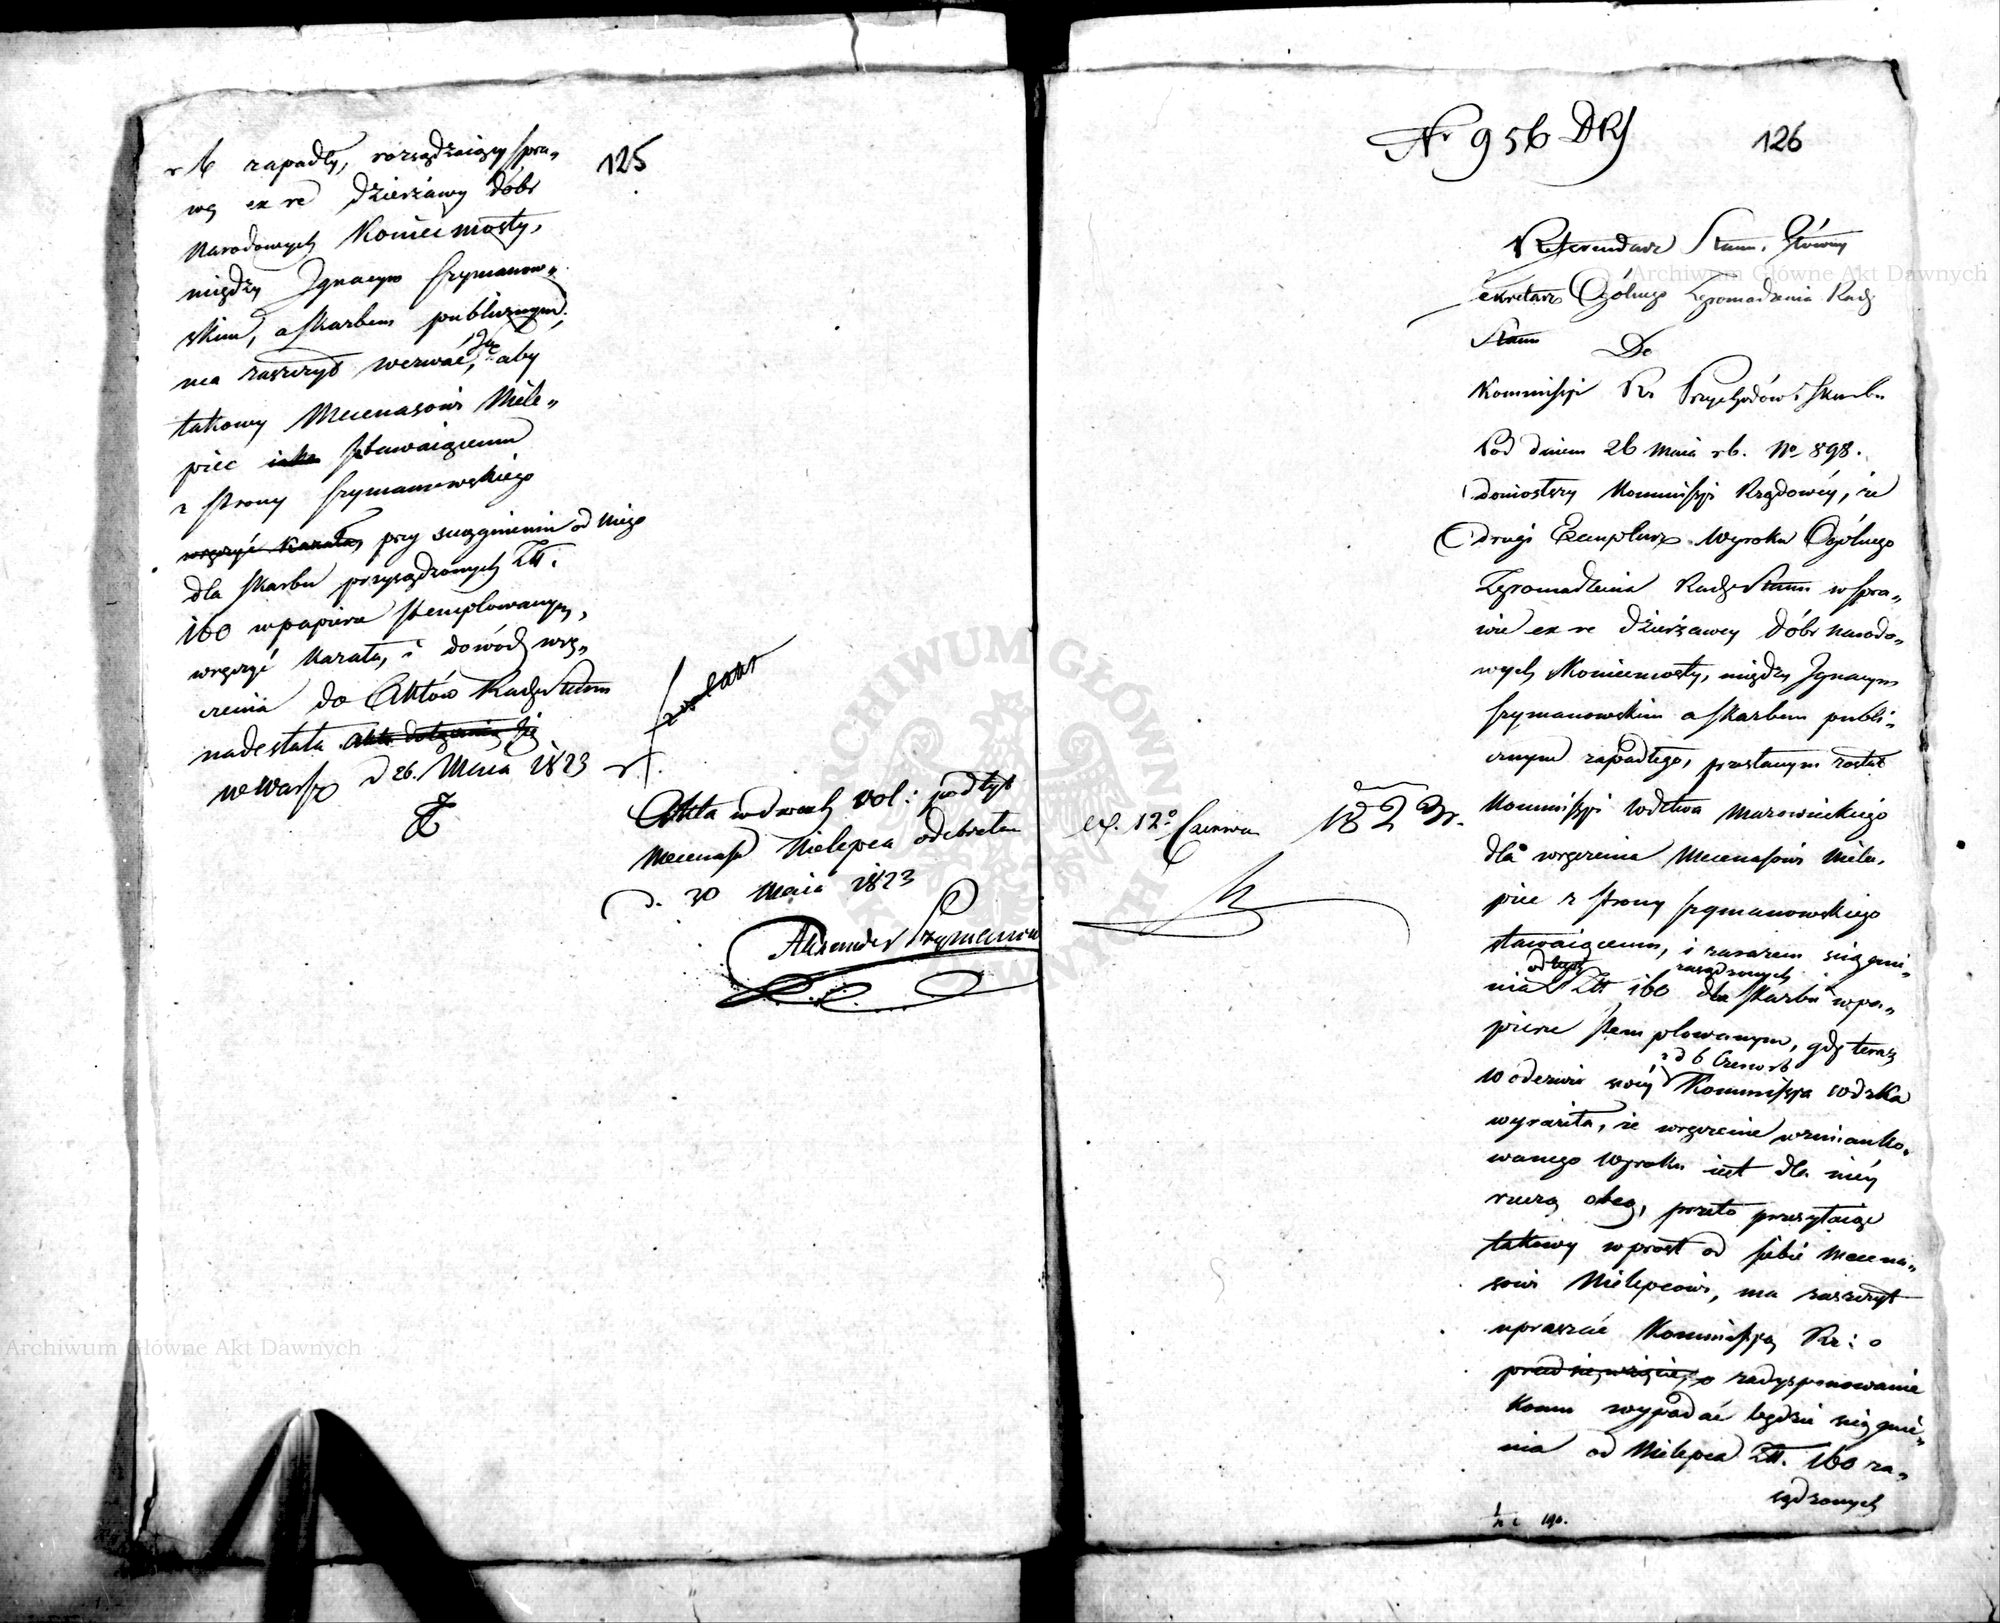 125
r b zapadły, rozsądzaiący spra„
wę ex re dzierżawy dóbr
Narodowych Koniecmosty,
między Ignacym Szymanow„
skim, a Skarbem publicznym;
ma zaszczyt wezwać, aby
takowy Mecenasowi Miele„
piec stawaiącemu
z strony Szymanowskiego
wręczyć kazała, przy sciągnieniu od niego
dla Skarbu przysądzonych Złł.
160 w papierze stemplowanym,
wręczyć kazała, i dowód wrę„
czenia do Aktów Rady Stanu
nadesłała
w Warsz d 26. Maia 1823
Akta w dwóch vol:
Mecenasa Mielepca odebrałem
d. 30 Maia 1823
Alexander Szymanow
Nr 956 DRS
126
Referendarz Stanu, Główny
Sekretarz Ogólnego Zgromadzenia Rady
Stanu
Do
Kommissyi Rz Przychodów i Skarbu
Pod dniem 26 Maia r b. No 898.
doniosłszy Kommissyi Rządowéy, że
drugi Exemplarz Wyroku Ogólnego
Zgromadzenia Rady Stanu w spra„
wie ex re dzierżawy dóbr narodo„
wych Koniecmosty, między Ignacym
Szymanowskim a Skarbem publi„
cznym zapadłego, przesłanym został
Kommissyi Wdztwa Mazowieckiego
dla wręczenia Mecenasowi Miele„
piec z strony Szymanowskiego
stawaiącemu, i zarazem sciągnie„
odtegoż zasądzonych
nia Złł 160 dla Skarbu w pa„
pierze stemplowanym, gdy teraz
z d 6 Czerw r b
w odezwie swéy Kommissya Wdzka
wyraziła, że wręczenie wzmianko„
wanego Wyroku iest dla niéy
rzeczą obcą, przeto przesyłaiąc
takowy wprost od siebie Mecena„
sowi Mielepcowi, ma zaszczyt
upraszać Kommissyą Rz: o
przedsięwzięcie, o zadysponowanie
komu wypadać będzie sciągnie„
nia od Mielepca Złł. 160 za„
sądzonych
ex. 12o Czerwca 1823 r.
ARCHIWUM GŁÓWNE AKT DAWNYCH
Archiwum Główne Akt Dawnych
Archiwum Główne Akt Dawnych